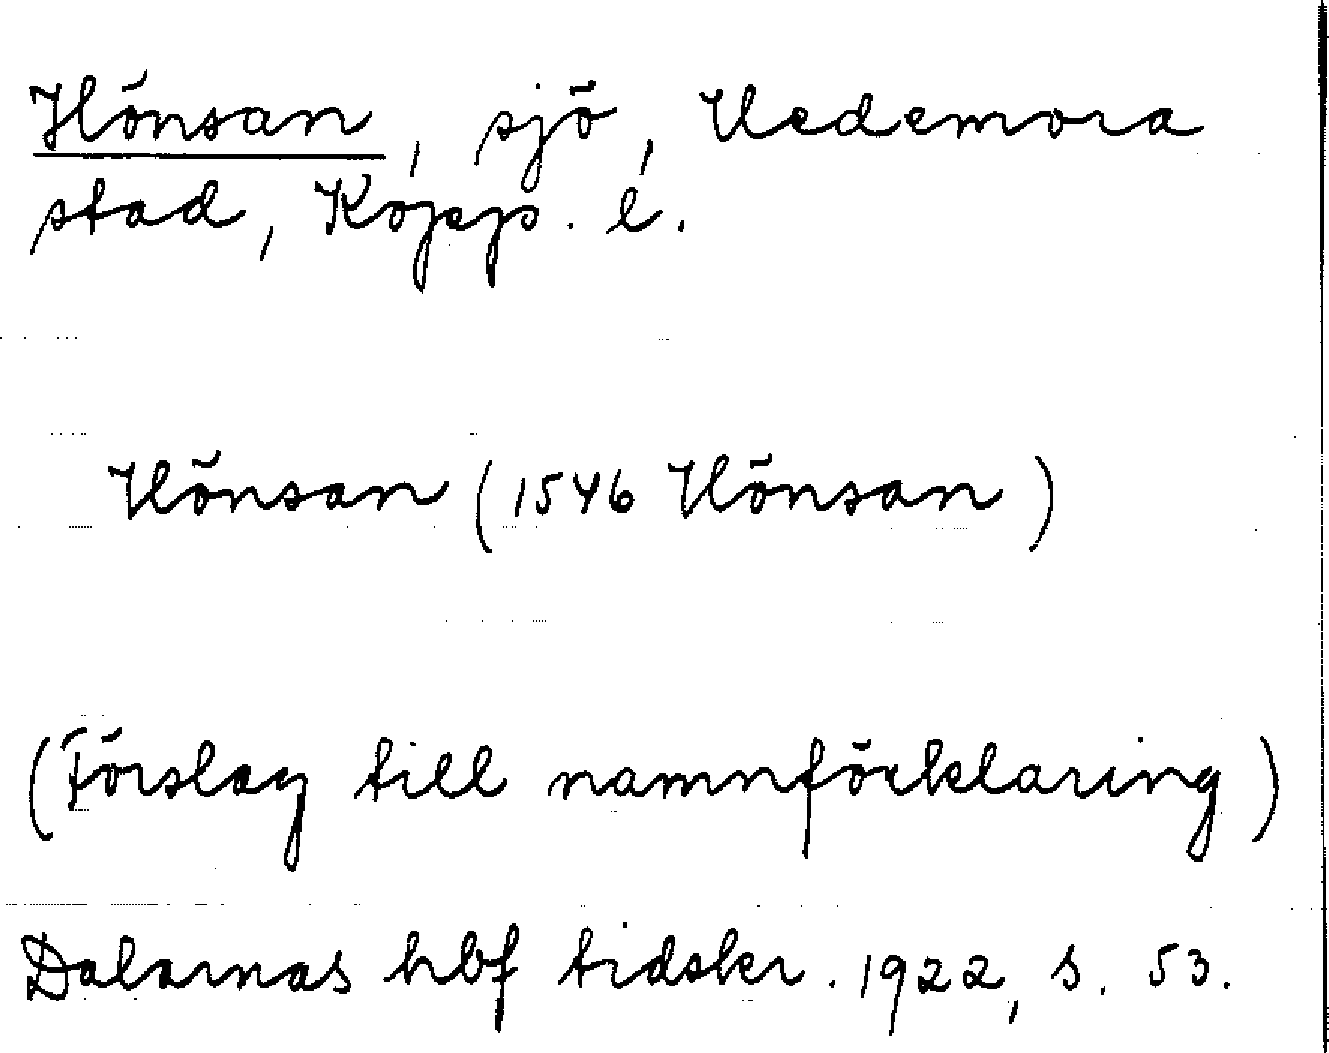 Hönsan, sjö, Hedemora
stad, Kopp. l.
Hönsan (1546 Hönsan)
(Förslag till namnförklaring)
Dalarnas hbf tidskr. 1922, s. 53.